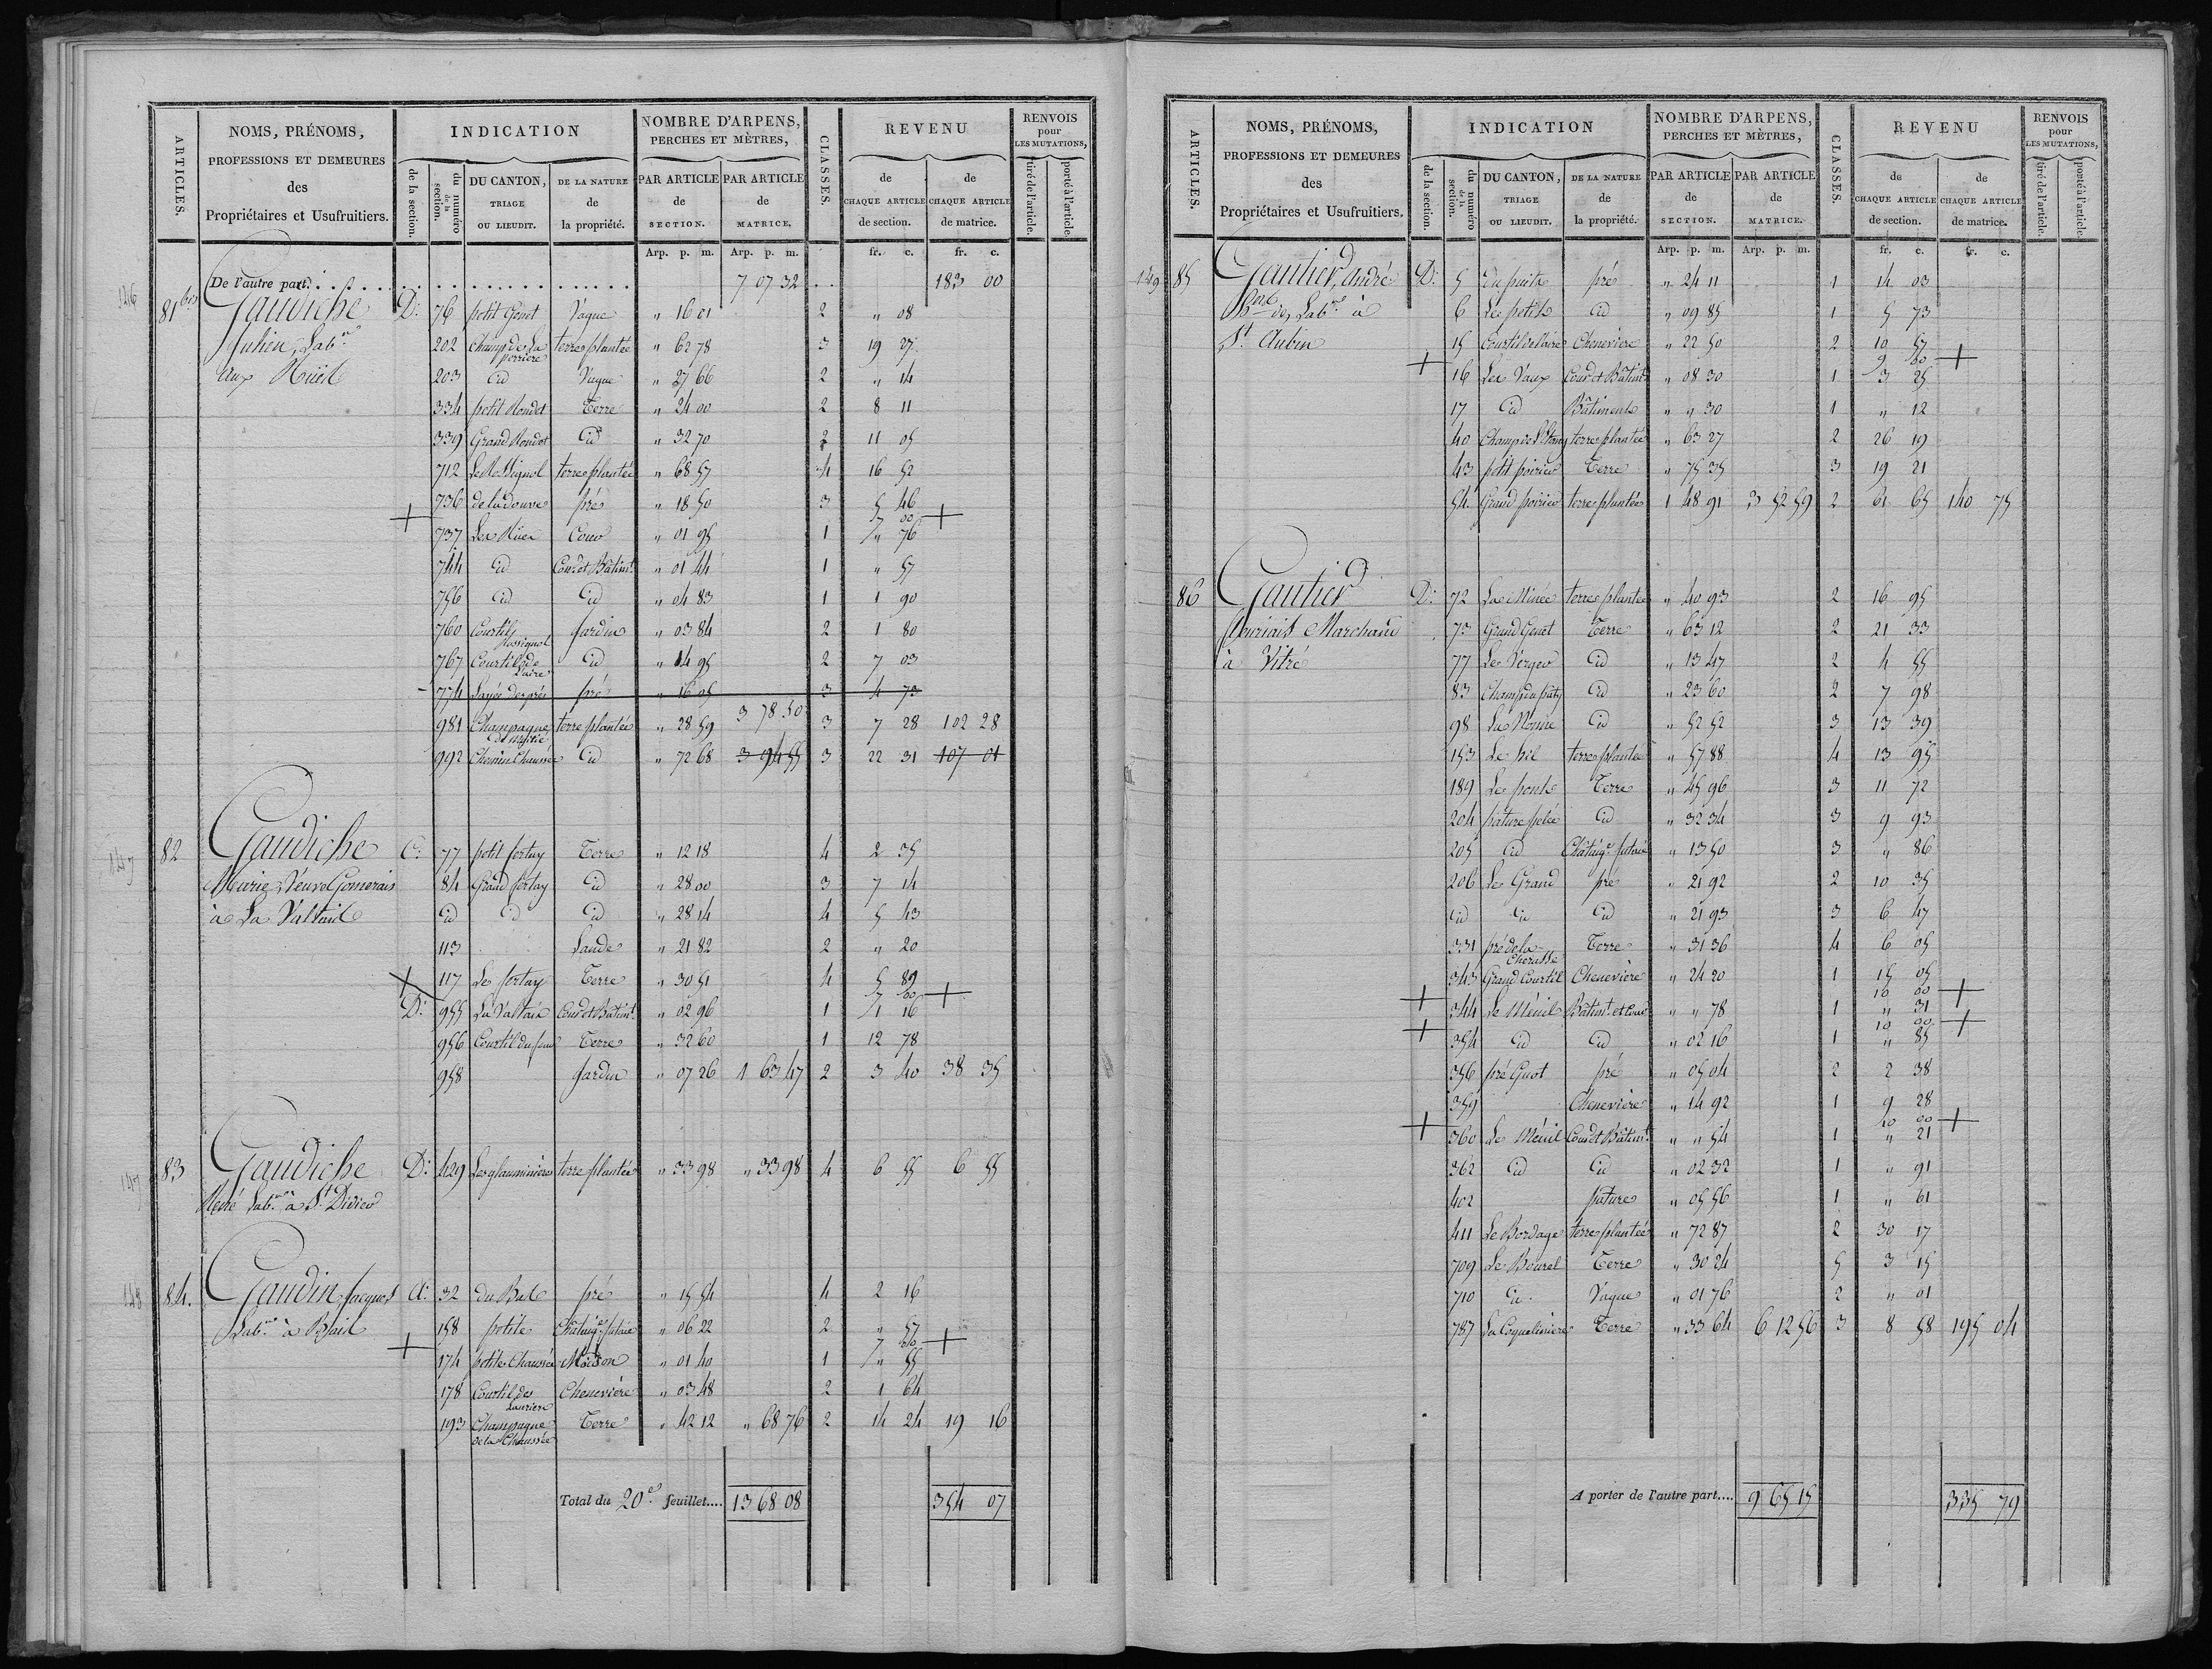 ARTICLES.
NOMS, PRÉNOMS,
PROFESSIONS ET DEMEURES
des
Propriétaires et Usufruitiers.
INDICATION
de la section.
du numéro de la section.
DU CANTON,
TRIAGE
OU LIEUDIT.
DE LA NATURE
de
la propriété.
NOMBRE D'ARPENS,
PERCHES ET MÈTRES,
PAR ARTICLE
de
SECTION.
PAR ARTICLE
de
MATRICE.
CLASSES.
REVENU
de
CHAQUE ARTICLE
de section.
de
CHAQUE ARTICLE
de matrice.
RENVOIS
pour
LES MUTATIONS,
tiré de l'article.
porté à l'article.
Arp. p. m. Arp. p. m. fr. c. fr. c.
De l'autre part. 7 07 32 183 00
146 81 bis Gaudiche D: 76 petit Genet Vague " 16 01 2 " 08
Julien, Labr 202 Champ de La perriere terre plantée " 62 78 3 19 27
aux 203 id Vague " 27 66 2 " 14
334 petit Rondet Terre " 24 00 2 8 11
339 Grand Rondet id " 32 70 2 11 05
712 Le Rossignol terre plantée " 68 57 4 16 52
736 de la douve pré " 18 50 3 5 46
7 00 +
+ 737 Les Rüer Cour " 01 95 1 " 76
744 id Cour et Bâtimt " 01 44 1 " 57
756 id id " 04 83 1 1 90
760 Courtil Rossignol Jardin " 03 84 2 1 80
767 Courtil de l'aire id " 14 95 2 7 03
- 774 des prés pré " 16 05 3 4 73
981 Champagne terre plantée " 28 59 3 78 50 3 7 28 102 28
992 Chemin Chaussée id " 72 68 3 94 55 3 22 31 107 01
147 82 Gaudiche C: 77 petit fertay Terre " 12 18 4 2 35
Marie, Veuve Gomerais 84 Grand fertay id " 28 00 3 7 14
à La Valtais id id id " 28 14 4 5 43
113 Lande " 21 82 2 " 20
+ 117 Le fertay Terre " 30 51 4 5 89
7 00 +
D: 955 La Valtais Cour et Bâtimt " 02 96 1 1 16
956 Courtil du four Terre " 32 60 1 12 78
958 Jardin " 07 26 1 63 47 2 3 40 38 35
147 83 Gaudiche D: 429 Les glauminières terre plantée " 33 98 " 33 98 4 6 55 6 55
René Labr à St Didier
148 84. Gaudin Jacques A: 32 du Bat pré " 15 54 4 2 16
Labr à Bais 158 petite Châtaige futaie " 06 22 2 " 57
7 00 +
+ 174 petite Chaussée Maison " 01 40 1 " 55
178 Courtil des Lauriers Chenevière " 03 48 2 1 64
193 Champagne de la Chaussée Terre " 42 12 " 68 76 2 14 24 19 16
Total du 20e feuillet.... 13 68 08 354 07
ARTICLES.
NOMS, PRÉNOMS,
PROFESSIONS ET DEMEURES
des
Propriétaires et Usufruitiers.
INDICATION
de la section.
du numéro de la section.
DU CANTON,
TRIAGE
OU LIEUDIT.
DE LA NATURE
de
la propriété.
NOMBRE D'ARPENS,
PERCHES ET MÈTRES,
PAR ARTICLE
de
SECTION.
PAR ARTICLE
de
MATRICE.
CLASSES.
REVENU
de
CHAQUE ARTICLE
de section.
de
CHAQUE ARTICLE
de matrice.
RENVOIS
pour
LES MUTATIONS,
tiré de l'article.
porté à l'article.
Arp. p. m. Arp. p. m. fr. c. fr. c.
149 85 Gautier, André D: 5 du puits pré " 24 11 1 14 03
Labr à 6 Le petit id " 09 85 1 5 73
St Aubin 15 Courtil de l'aire Chenevière " 22 50 2 10 57
9 00 +
+ 16 Les Vaux Cour et Bâtimts " 08 30 1 3 25
17 id Bâtiments " " 30 1 " 12
40 Champ de l'Etang terre plantée " 63 27 2 26 19
43 petit poirier Terre " 75 35 3 19 21
54 Grand poirier terre plantée 1 48 91 3 52 59 2 61 65 140 75
86 Gautier D: 72 La Minée terre plantée " 40 93 2 16 95
Marchand 73 Grand Genet Terre " 63 12 2 21 33
à Vitré 77 Le Verger id " 13 47 2 4 55
83 Champ du pâtis id " 23 60 2 7 98
98 La Noüire id " 52 52 3 13 39
153 Le bil terre plantée " 57 88 4 13 95
189 Le pont Terre " 45 96 3 11 72
204 pature pelée id " 32 34 3 9 93
205 id Châtaige futaie " 13 50 3 " 86
206 Le Grand pré " 21 92 2 10 35
id id id " 21 93 3 6 47
331 pré de la Cherasse Terre " 31 36 4 6 05
343 Grand Courtil Chenevière " 24 20 1 15 05
10 00 +
+ 344 Le Ménil Bâtimt et Cour " " 78 1 " 31
10 00 +
+ 354 id id " 02 16 1 " 85
356 pré Guot pré " 05 04 2 2 38
359 Chenevière " 14 92 1 9 28
10 00 +
+ 360 Le Ménil Cour et Bâtimt " " 54 1 " 21
362 id id " 02 32 1 " 91
402 pature " 05 56 1 " 61
411 Le Bordage terre plantée " 72 87 2 30 17
709 Le Bourel Terre " 30 24 5 3 15
710 id Vague " 01 76 2 " 01
787 La Coquelinière Terre " 33 64 6 12 56 3 8 58 195 04
A porter de l'autre part.... 9 65 15 335 79